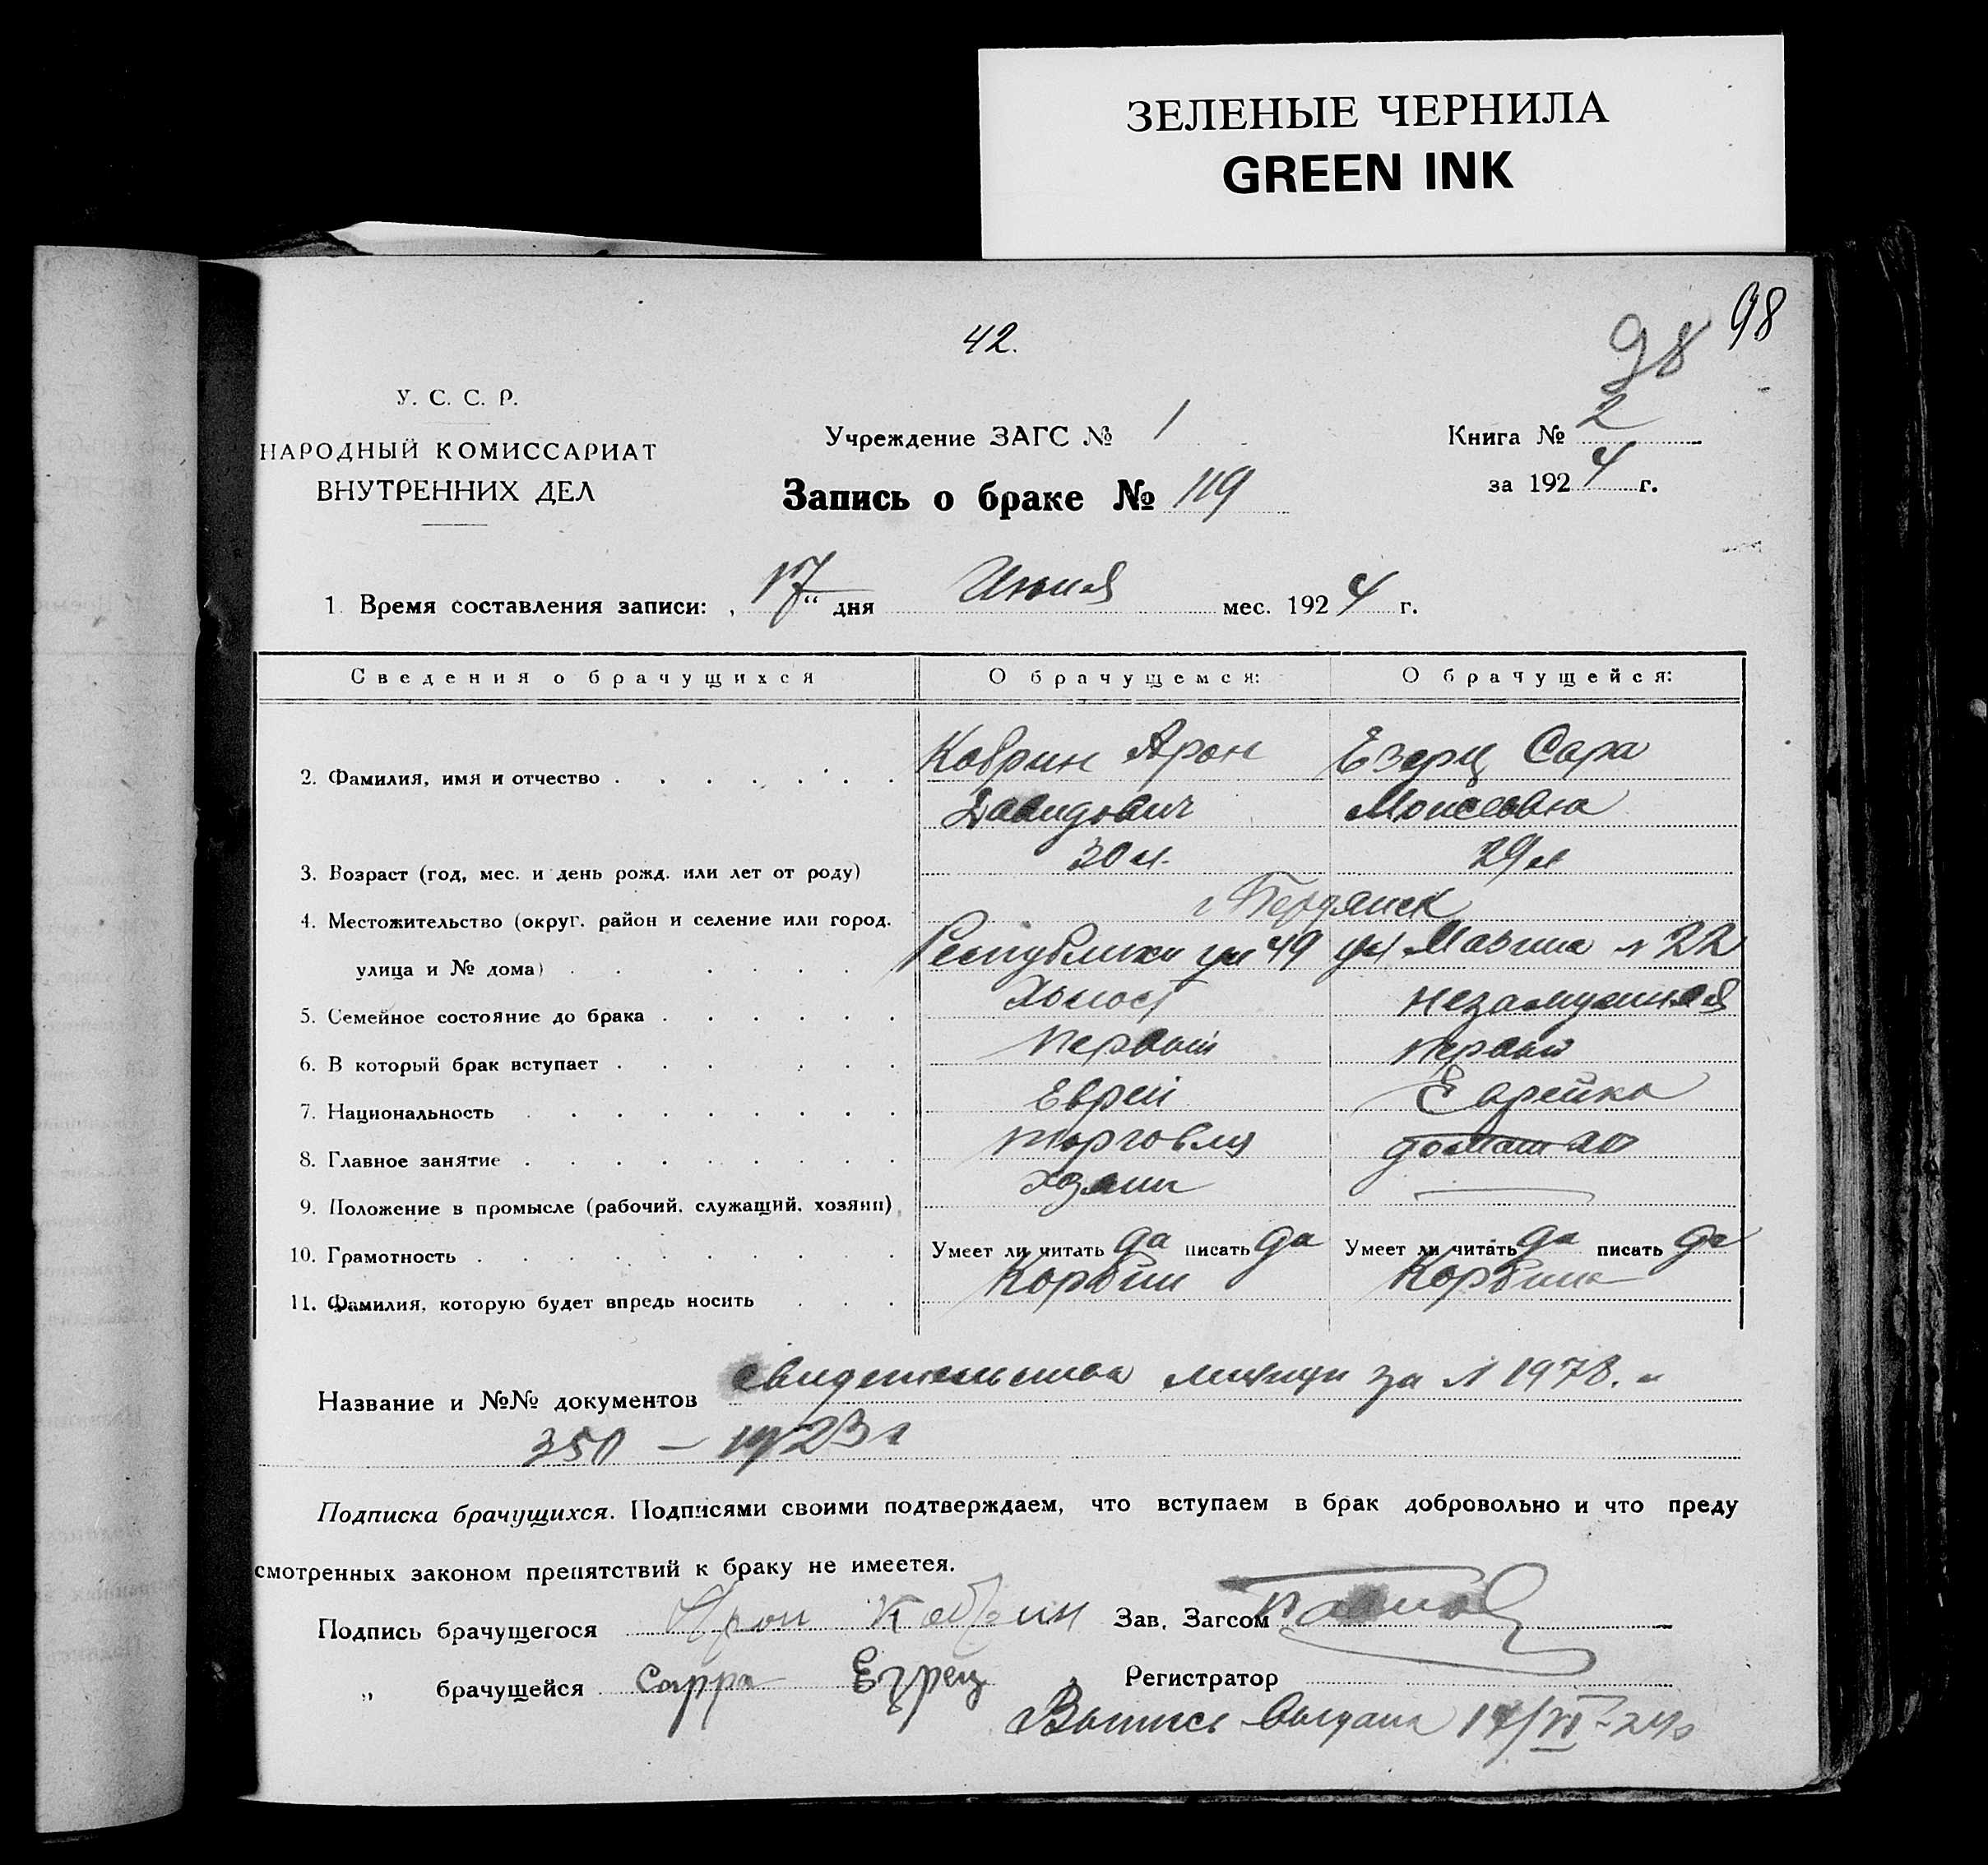 ЗЕЛЕНЫЕ ЧЕРНИЛА
GREEN INK
98
42.
98
У. С. С. Р.
НАРОДНЫЙ КОМИССАРИАТ
ВНУТРЕННИХ ДЕЛ
Учреждение ЗАГС № 1
Книга № 2
за 1924 г.
Запись о браке № 119
1. Время составления записи: „17“ дня Июня мес. 1924 г.
Сведения о брачущихся О брачущемся: О брачущейся:
2. Фамилия, имя и отчество Кобрин Арон Езерц Сара
Давидович Моисеевна
3. Возраст (год, мес. и день рожд. или лет от роду) 30 л. 29 л
4. Местожительство (округ. район и селение или город. г Бердянск
улица и № дома) Республики ул 49 ул 22
5. Семейное состояние до брака Холост незамужняя
6. В который брак вступает Первый первый
7. Национальность Еврей Еврейка
8. Главное занятие торговля
9. Положение в промысле (рабочий, служащий, хозяин) хозяин
10. Грамотность Умеет ли читать да писать да Умеет ли читать да писать да
11. Фамилия, которую будет впредь носить Корбин Корбина
Название и №№ документов свидетельства милиции за № 1978. и
350 — 1923 г
Подписка брачущихся. Подписями своими подтверждаем, что вступаем в брак добровольно и что преду
смотренных законом препятствий к браку не имеется.
Подпись брачущегося Арон Кобрин Зав. Загсом
„ брачущейся Сарра Езрец Регистратор
Выпись выдана 17/VI-24 г